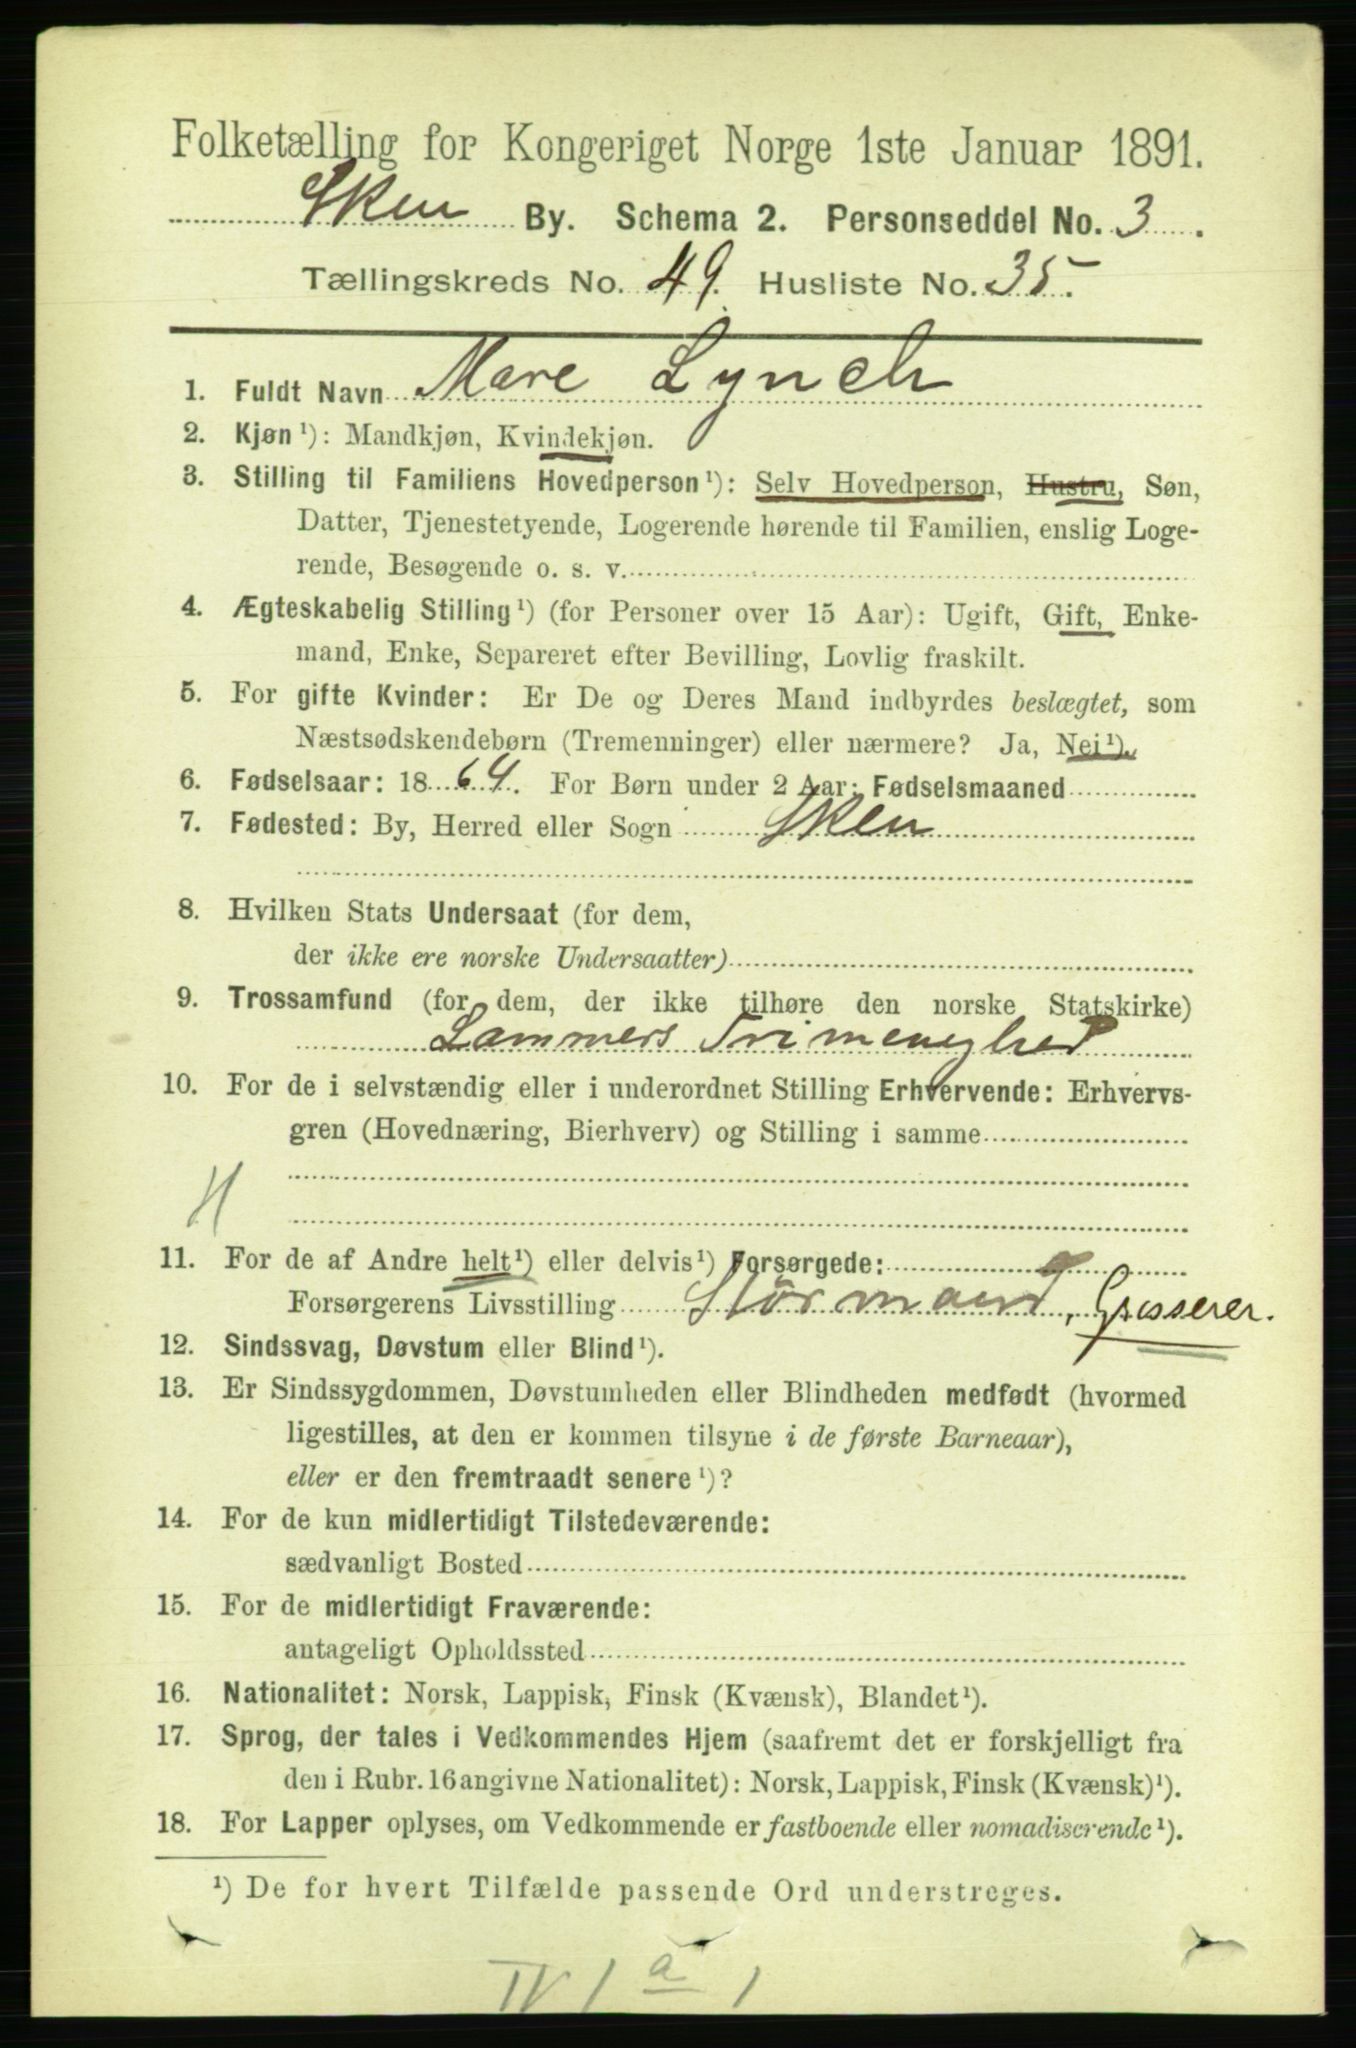 Folketælling for Kongeriget Norge 1ste Januar 1891.
Skien By. Schema 2. Personseddel No. 3.
Tællingskreds No. 49. Husliste No. 35.
1. Fuldt Navn Mare Lynch
2. Kjøn¹): Mandkjøn, Kvindekjøn.
3. Stilling til Familiens Hovedperson¹): Selv Hovedperson, Hustru, Søn,
Datter, Tjenestetyende, Logerende hørende til Familien, enslig Loge-
rende, Besøgende o. s. v.
4. Ægteskabelig Stilling¹) (for Personer over 15 Aar): Ugift, Gift, Enke-
mand, Enke, Separeret efter Bevilling, Lovlig fraskilt.
5. For gifte Kvinder: Er De og Deres Mand indbyrdes beslægtet, som
Næstsødskendebørn (Tremenninger) eller nærmere? Ja, Nei¹).
6. Fødselsaar: 1864. For Børn under 2 Aar: Fødselsmaaned
7. Fødested: By, Herred eller Sogn Skien
8. Hvilken Stats Undersaat (for dem,
der ikke ere norske Undersaatter)
9. Trossamfund (for dem, der ikke tilhøre den norske Statskirke)
Lammers Frimenighed
10. For de i selvstændig eller i underordnet Stilling Erhvervende: Erhvervs-
gren (Hovednæring, Bierhverv) og Stilling i samme
H
11. For de af Andre helt¹) eller delvis¹) Forsørgede:
Forsørgerens Livsstilling Störmand, Grosserer.
12. Sindssvag, Døvstum eller Blind¹).
13. Er Sindssygdommen, Døvstumheden eller Blindheden medfødt (hvormed
ligestilles, at den er kommen tilsyne i de første Barneaar),
eller er den fremtraadt senere¹)?
14. For de kun midlertidigt Tilstedeværende:
sædvanligt Bosted
15. For de midlertidigt Fraværende:
antageligt Opholdssted
16. Nationalitet: Norsk, Lappisk, Finsk (Kvænsk), Blandet¹).
17. Sprog, der tales i Vedkommendes Hjem (saafremt det er forskjelligt fra
den i Rubr. 16 angivne Nationalitet): Norsk, Lappisk, Finsk (Kvænsk)¹).
18. For Lapper oplyses, om Vedkommende er fastboende eller nomadiserende¹).
¹) De for hvert Tilfælde passende Ord understreges.
IV 1 a 1